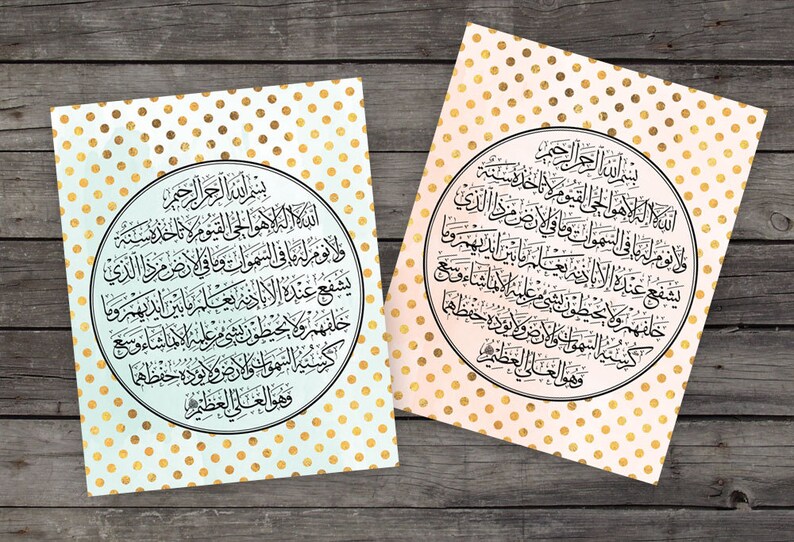 بسم الله الرحمن الرحيم
الله لا إله إلا هو الحي القيوم لا تأخذه سنة
ولا نوم له ما في السموات وما في الأرض من ذا الذي
يشفع عنده إلا بإذنه يعلم ما بين أيديهم وما
خلفهم ولا يحيطون بشيء من علمه إلا بما شاء وسع
كرسيه السموات والأرض ولا يؤده حفظهما
وهو العلي العظيم
بسم الله الرحمن الرحيم
الله لا إله إلا هو الحي القيوم لا تأخذه سنة
ولا نوم له ما في السموات وما في الأرض من ذا الذي
يشفع عنده إلا بإذنه يعلم ما بين أيديهم وما
خلفهم ولا يحيطون بشيء من علمه إلا بما شاء وسع
كرسيه السموات والأرض ولا يؤده حفظهما
وهو العلي العظيم